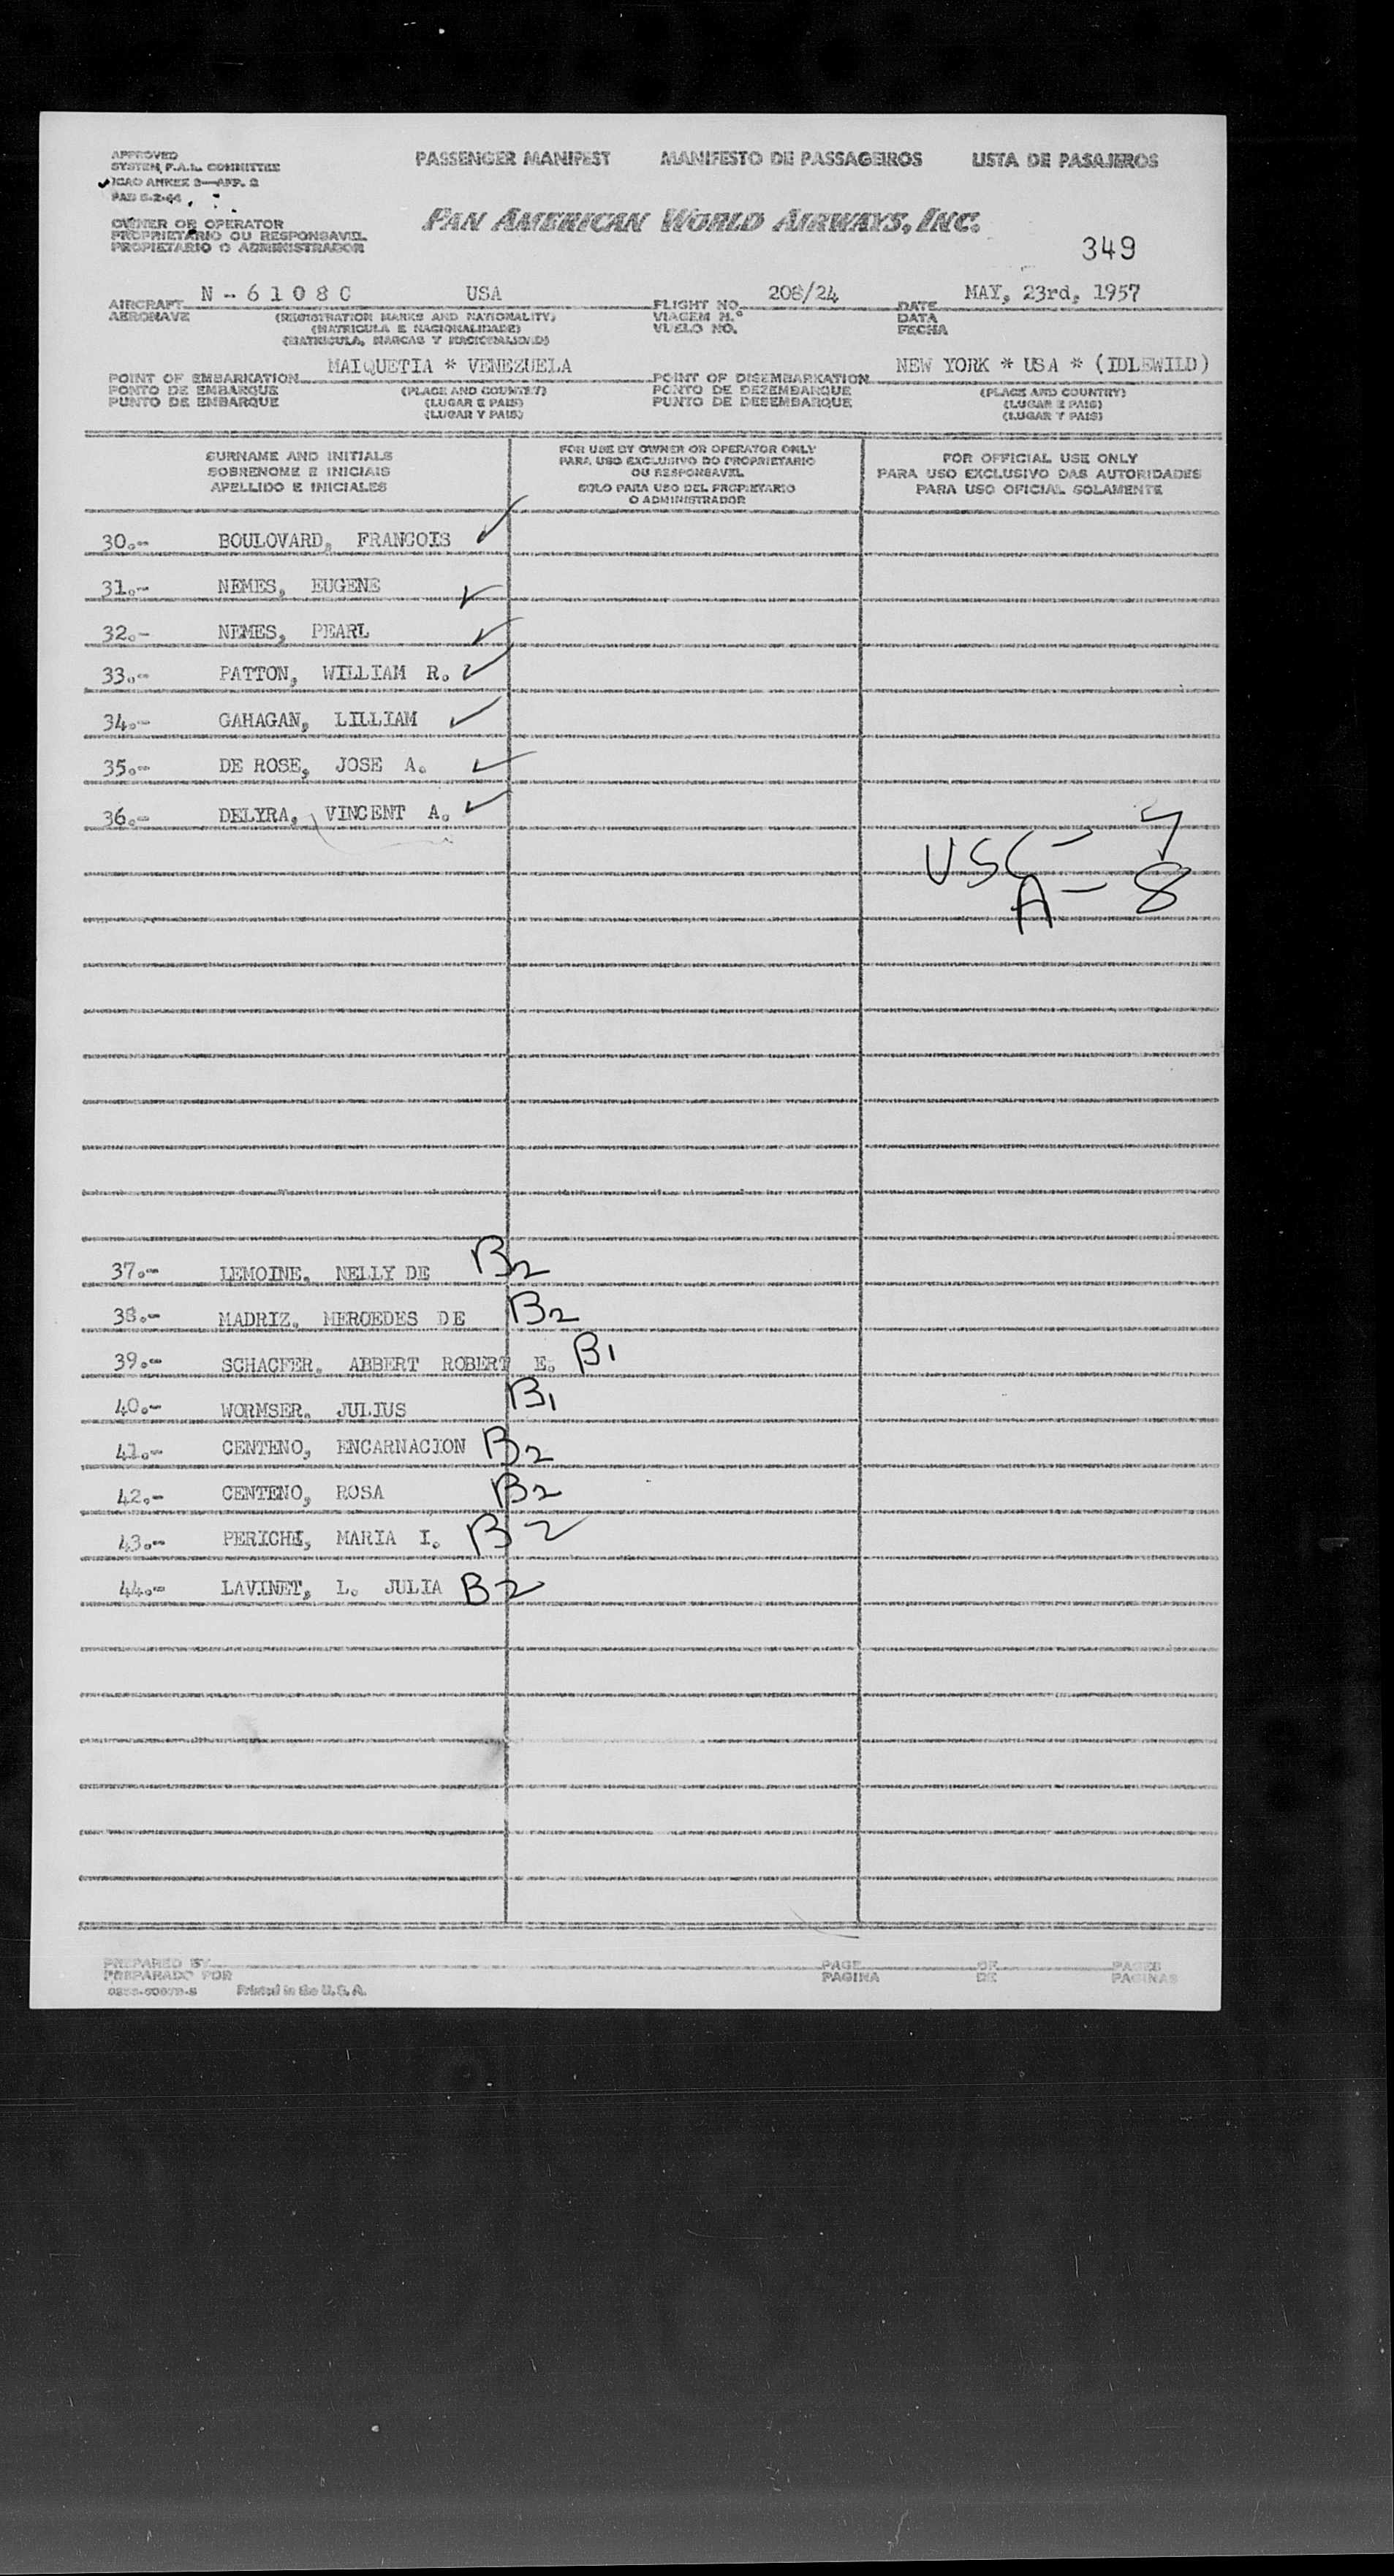 APPROVED
SYSTEM F.A.L. COMMITTEE
ICAO ANNEX 9—APP. 2
PAD 5-2-44
PASSENGER MANIFEST MANIFESTO DE PASSAGEIROS LISTA DE PASAJEROS
OWNER OR OPERATOR
PROPRIETARIO OU RESPONSAVEL
PROPIETARIO O ADMINISTRADOR
PAN AMERICAN WORLD AIRWAYS, INC.
349
AIRCRAFT N - 6 1 0 8 C USA FLIGHT NO. 206/24 DATE MAY, 23rd, 1957
AERONAVE (REGISTRATION MARKS AND NATIONALITY) VIAGEM N.º DATA
(MATRICULA E NACIONALIDADE) VUELO NO. FECHA
(MATRICULA, MARCAS Y NACIONALIDAD)
POINT OF EMBARKATION MAIQUETIA * VENEZUELA POINT OF DISEMBARKATION NEW YORK * USA * (IDLEWILD)
PONTO DE EMBARQUE (PLACE AND COUNTRY) PONTO DE DEZEMBARQUE (PLACE AND COUNTRY)
PUNTO DE EMBARQUE (LUGAR E PAIS) PUNTO DE DESEMBARQUE (LUGAR E PAIS)
(LUGAR Y PAIS) (LUGAR Y PAIS)
SURNAME AND INITIALS
SOBRENOME E INICIAIS
APELLIDO E INICIALES
FOR USE BY OWNER OR OPERATOR ONLY
PARA USO EXCLUSIVO DO PROPRIETARIO
OU RESPONSAVEL
SOLO PARA USO DEL PROPIETARIO
O ADMINISTRADOR
FOR OFFICIAL USE ONLY
PARA USO EXCLUSIVO DAS AUTORIDADES
PARA USO OFICIAL SOLAMENTE
30.- BOULOVARD, FRANCOIS ✓
31.- NEMES, EUGENE ✓
32.- NEMES, PEARL ✓
33.- PATTON, WILLIAM R. ✓
34.- GAHAGAN, LILLIAM ✓
35.- DE ROSE, JOSE A. ✓
36.- DELYRA, VINCENT A. ✓
USC - 7
A - 8
37.- LEMOINE, NELLY DE B2
38.- MADRIZ, MERCEDES DE B2
39.- SCHACFER, ABBERT ROBERT E. B1
40.- WORMSER, JULIUS B1
41.- CENTENO, ENCARNACION B2
42.- CENTENO, ROSA B2
43.- PERICHI, MARIA I. B2
44.- LAVINET, L. JULIA B2
PREPARED BY PAGE OF PAGES
PREPARADO POR PAGINA DE PAGINAS
Printed in the U.S.A.